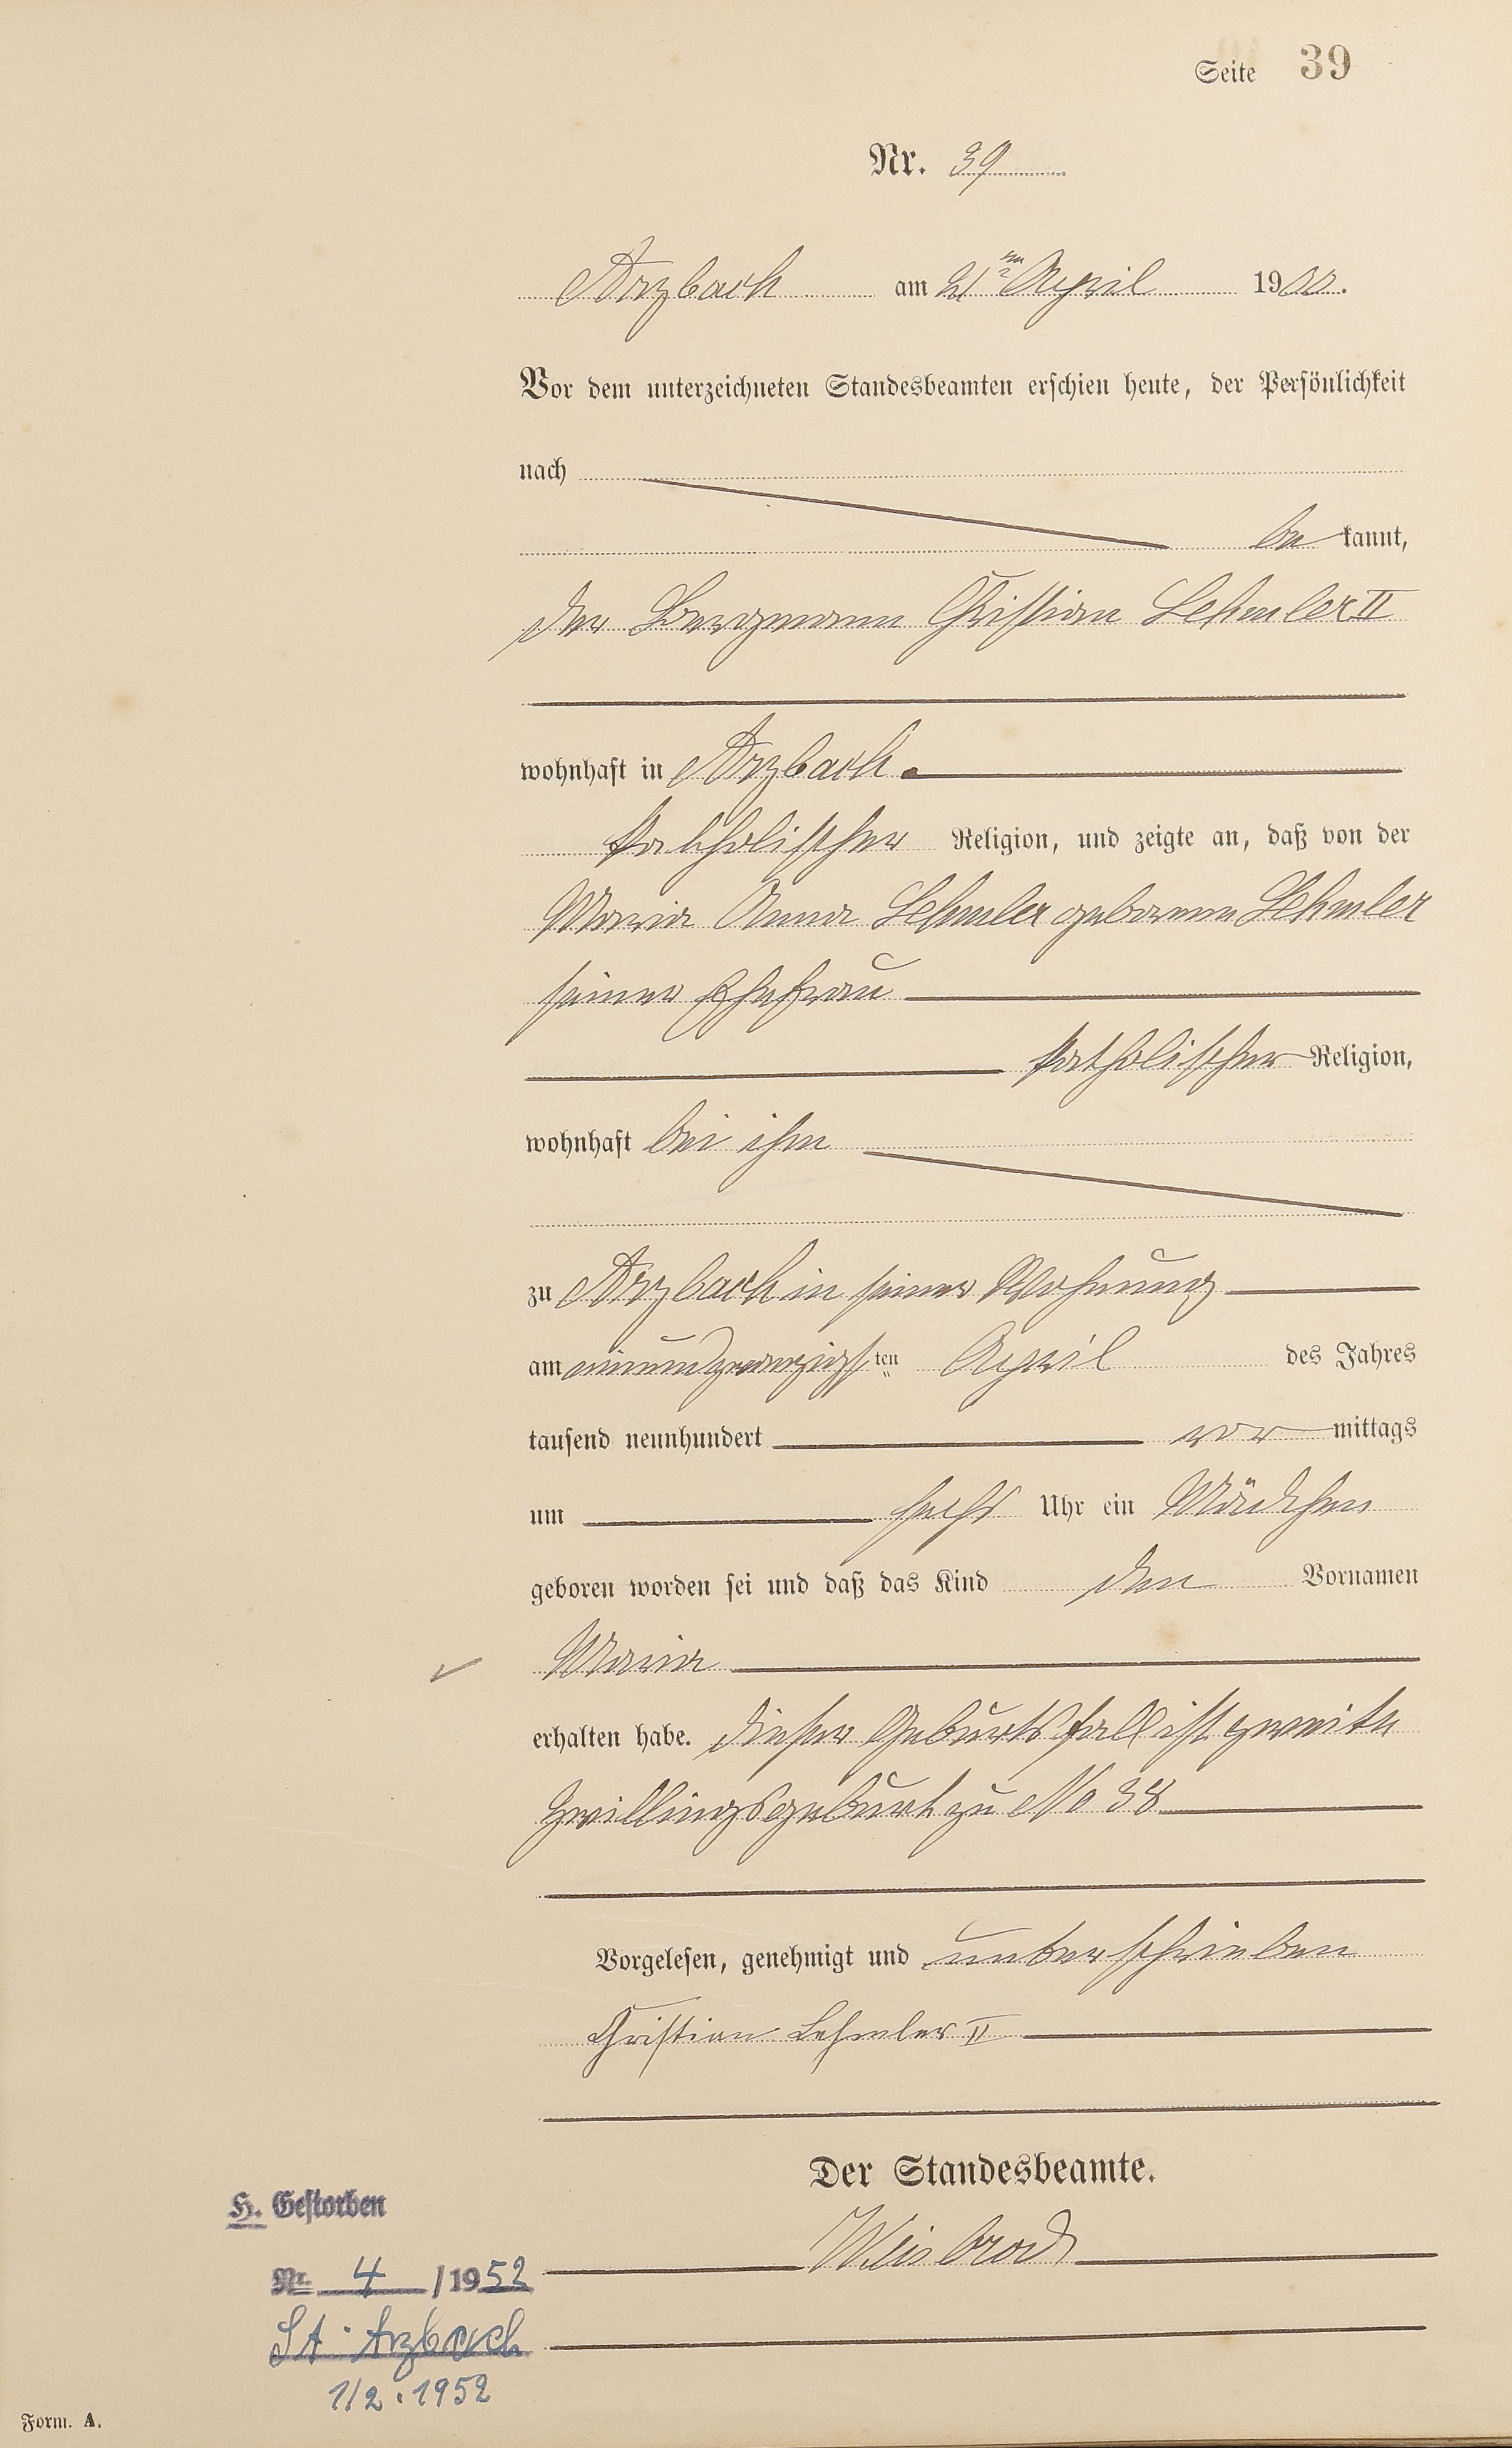 Seite 39
Nr. 39
Arzbach am 21ten April 1900.
Vor dem unterzeichneten Standesbeamten erschien heute, der Persönlichkeit
nach
be kannt,
der Bergmann Christian Lehmler II
wohnhaft in Arzbach.
katholischer Religion, und zeigte an, daß von der
Maria Anna Lehmler geborenen Lehmler
seiner Ehefrau
katholischer Religion,
wohnhaft bei ihm
zu Arzbach in seiner Wohnung
am einundzwanzigsten April des Jahres
tausend neunhundert vor mittags
um sechs Uhr ein Mädchen
geboren worden sei und daß das Kind den Vornamen
Maria
erhalten habe. Dieser Geburtsfall ist zweite
Zwillingsgeburt zu No 38
Vorgelesen, genehmigt und unterschrieben
Christian Lehmler II
Der Standesbeamte.
Weisbrod
H. Gestorben
Nr. 4 / 1952
StA. Arzbach
1/2.1952
Form. A.